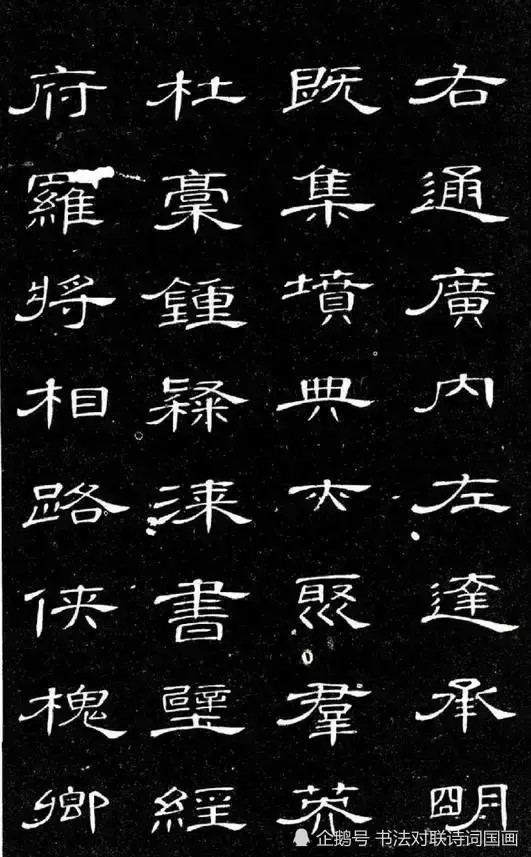 右通廣内左達承明
既集墳典亦聚羣英
杜稾鍾隸漆書壁經
府羅將相路俠槐卿
企鹅号 书法对联诗词国画